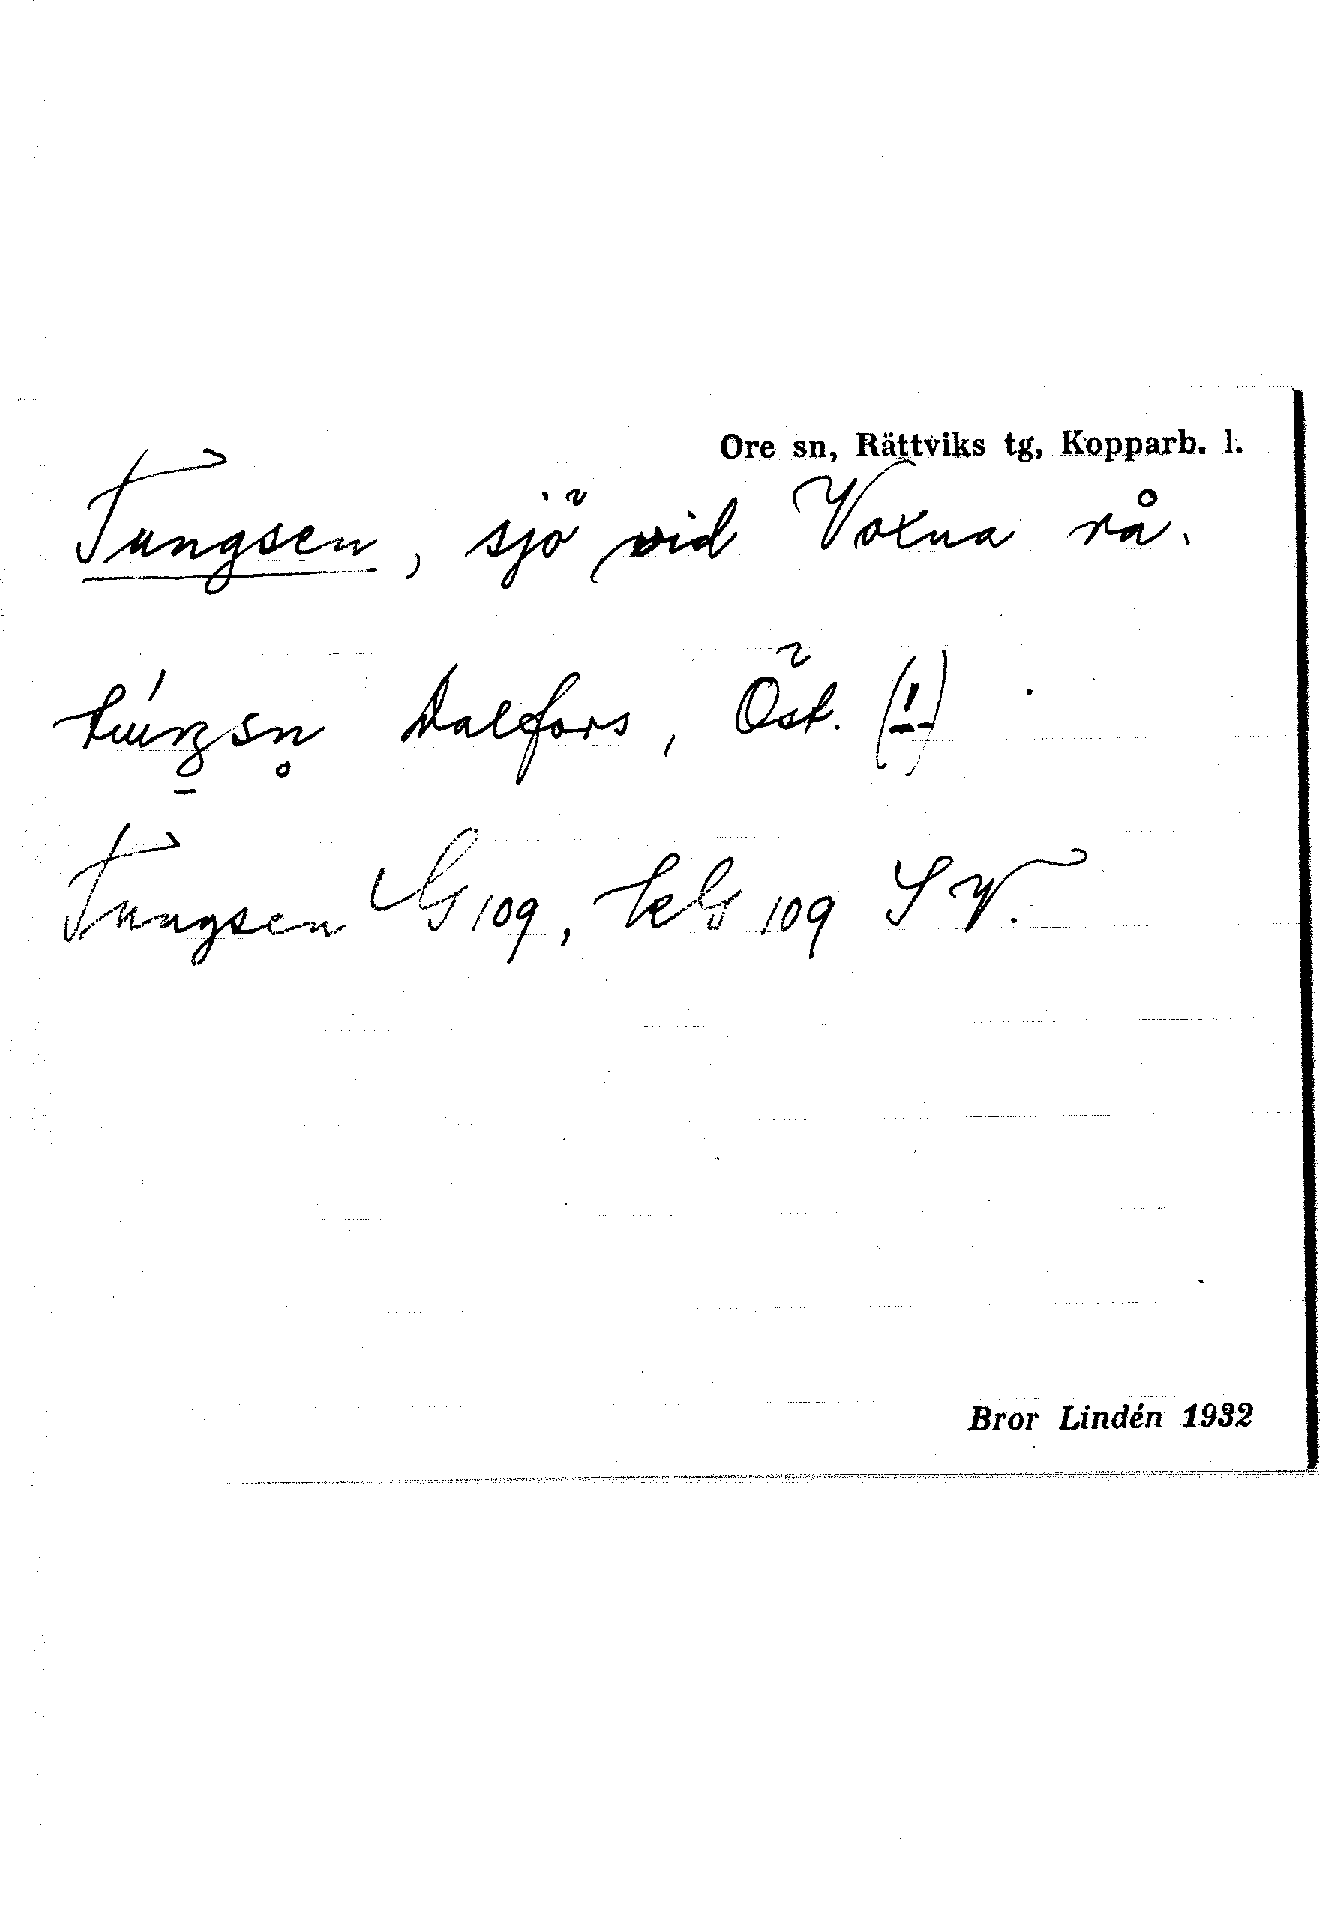 Ore sn, Rättviks tg, Kopparb. l.
Tungsen, sjö vid Voxna rå.
Dalfors, Öst. (!)
Tungsen G 109, ekG 109 SV.
Bror Lindén 1932